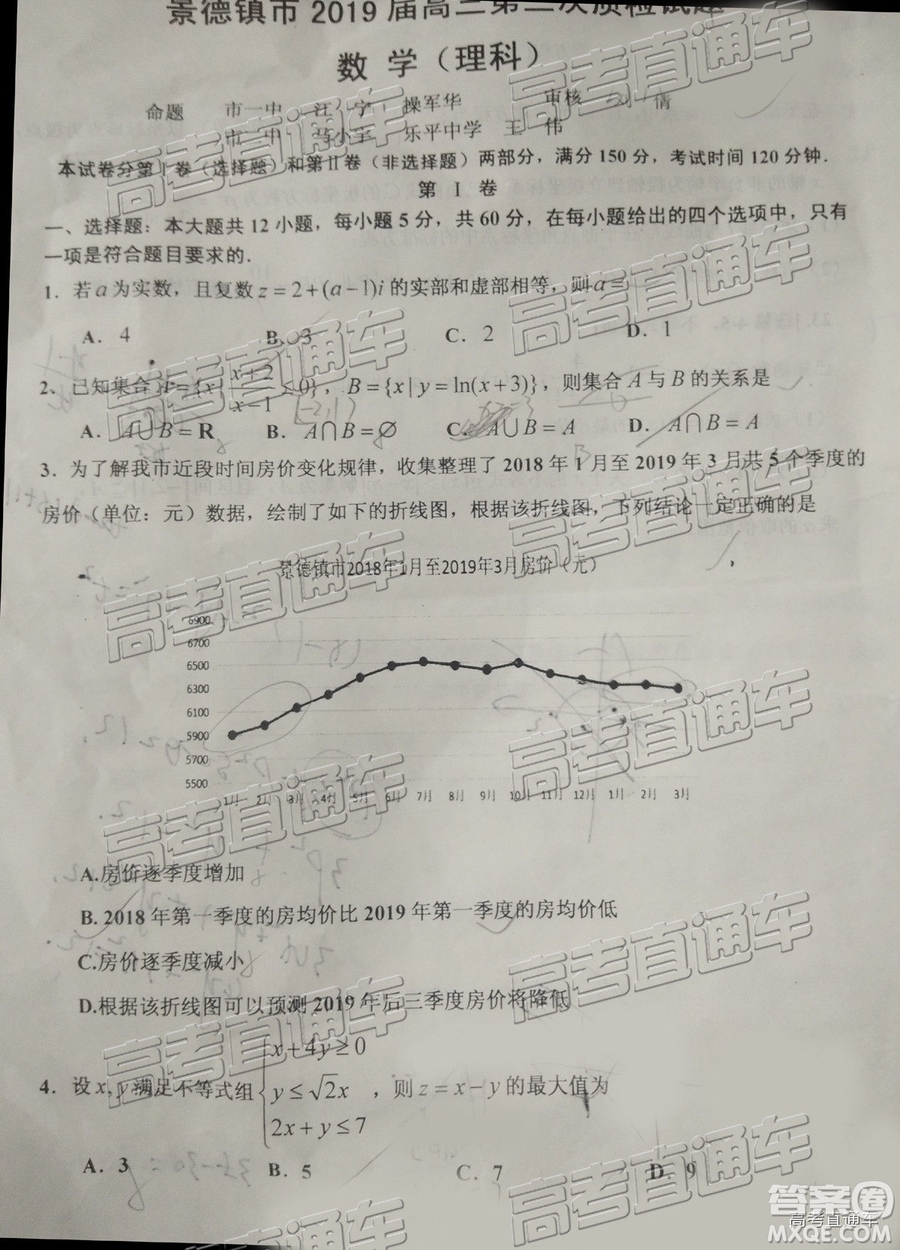 景德镇市 2019 届高三第二次质检试题
数 学（理科）
命题 市一中 江 宁 操军华 审核 刘 倩
市一中 马小宇 乐平中学 王 伟
本试卷分第Ⅰ卷（选择题）和第Ⅱ卷（非选择题）两部分，满分 150 分，考试时间 120 分钟．
第 Ⅰ 卷
一、选择题：本大题共 12 小题，每小题 5 分，共 60 分，在每小题给出的四个选项中，只有
一项是符合题目要求的．
1．若a为实数，且复数z=2+(a-1)i的实部和虚部相等，则a=
A．4 B．3 C．2 D．1
2．已知集合A={x|x+2/x-1≤0}，B={x|y=ln(x+3)}，则集合A与B的关系是
A．A∪B=R B．A∩B=∅ C．A∪B=A D．A∩B=A
3．为了解我市近段时间房价变化规律，收集整理了 2018 年 1 月至 2019 年 3 月共 5 个季度的
房价（单位：元）数据，绘制了如下的折线图，根据该折线图，下列结论一定正确的是
景德镇市2018年1月至2019年3月房价（元）
6900
6700
6500
6300
6100
5900
5700
5500
1月 2月 3月 4月 5月 6月 7月 8月 9月 10月 11月 12月 1月 2月 3月
A.房价逐季度增加
B. 2018 年第一季度的房均价比 2019 年第一季度的房均价低
C.房价逐季度减小
D.根据该折线图可以预测 2019 年后三季度房价将降低
4．设x,y满足不等式组{x+4y≥0
y≤√2x ，则z=x-y的最大值为
2x+y≤7
A．3 B．5 C．7 D．9
高考直通车
答案圈
高考直通车